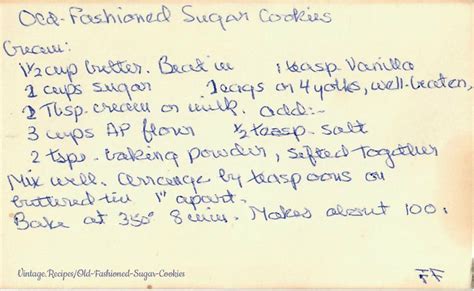 Old-Fashioned Sugar Cookies
Cream:
1½ cup butter. Beat in 1 teasp. Vanilla
2 cups sugar 2 eggs or 4 yolks, well-beaten,
2 Tbsp. cream or milk. add:-
3 cups AP flour ½ teasp. salt
2 tsps. baking powder, sifted together
Mix well. arrange by teaspoons on
buttered tin 1" apart.
Bake at 350° 8 min. Makes about 100.
Vintage.Recipes/Old-Fashioned-Sugar-Cookies
FF